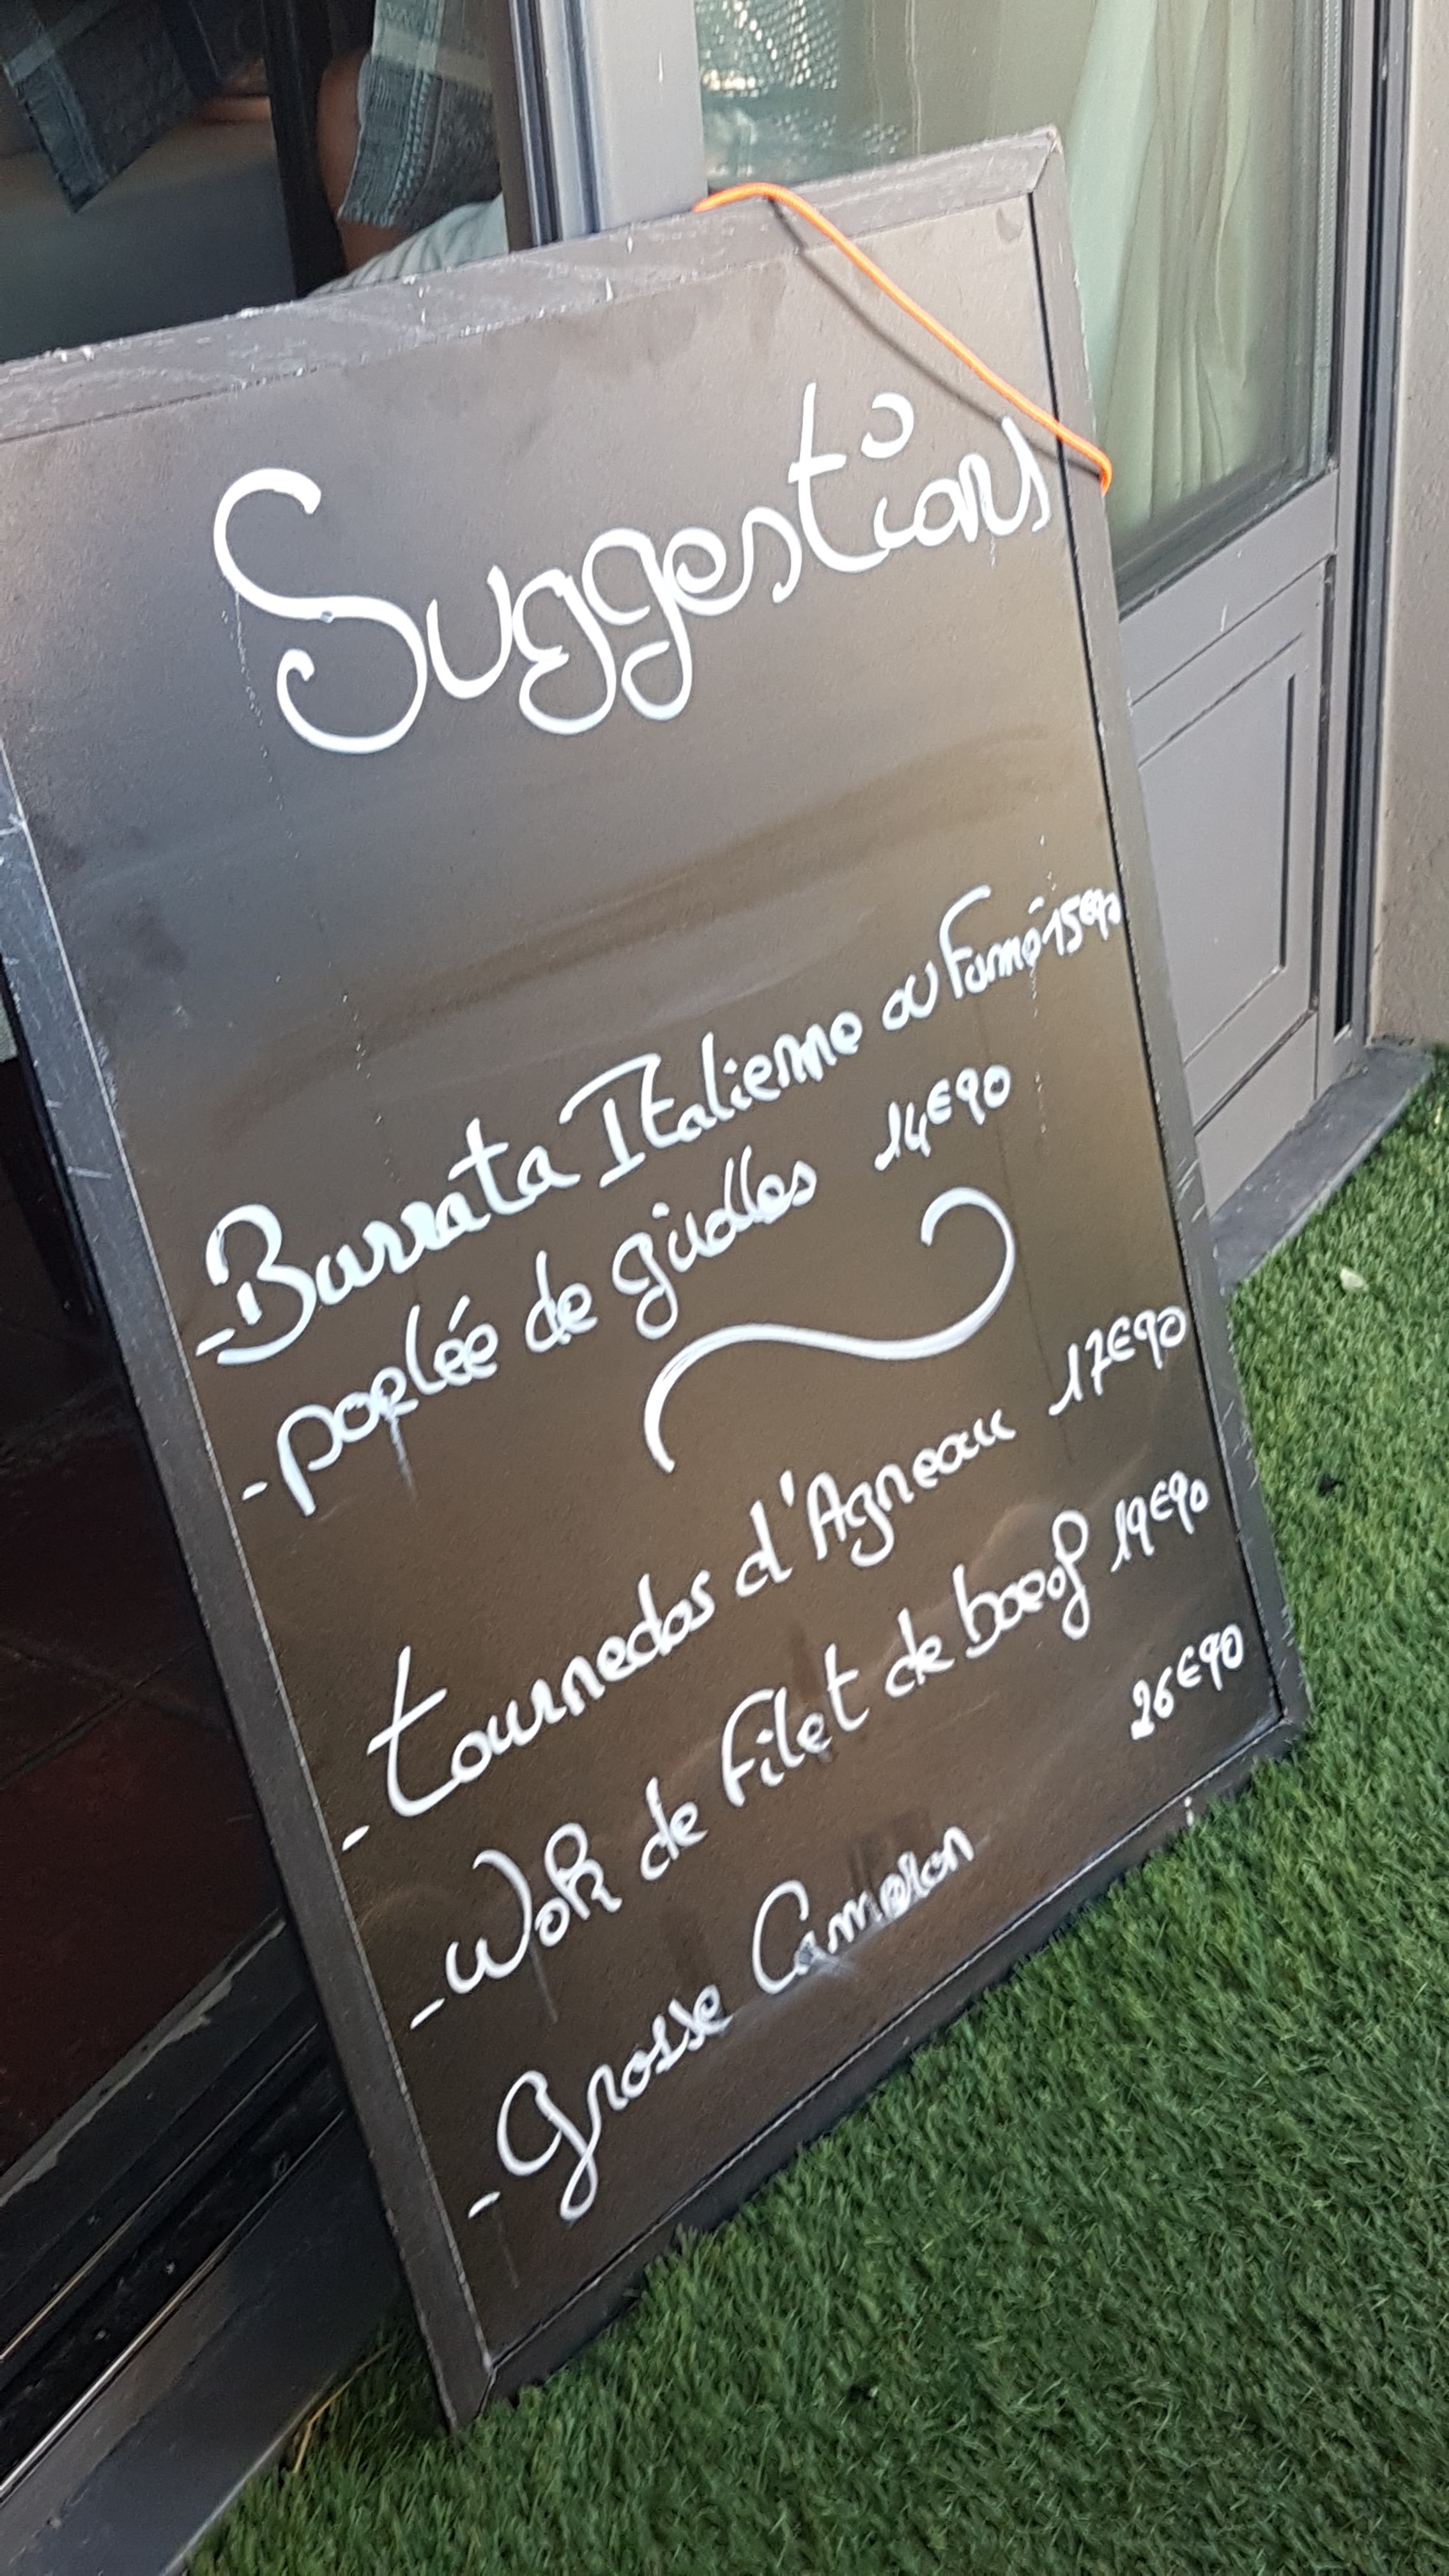 Suggestions
- Burrata Italienne ou Fumé 15€90
- poêlée de girolles 14€90
- tournedos d'Agneau 17€90
- Wok de Filet de boeuf 19€90
26€90
- Grosse Camaron